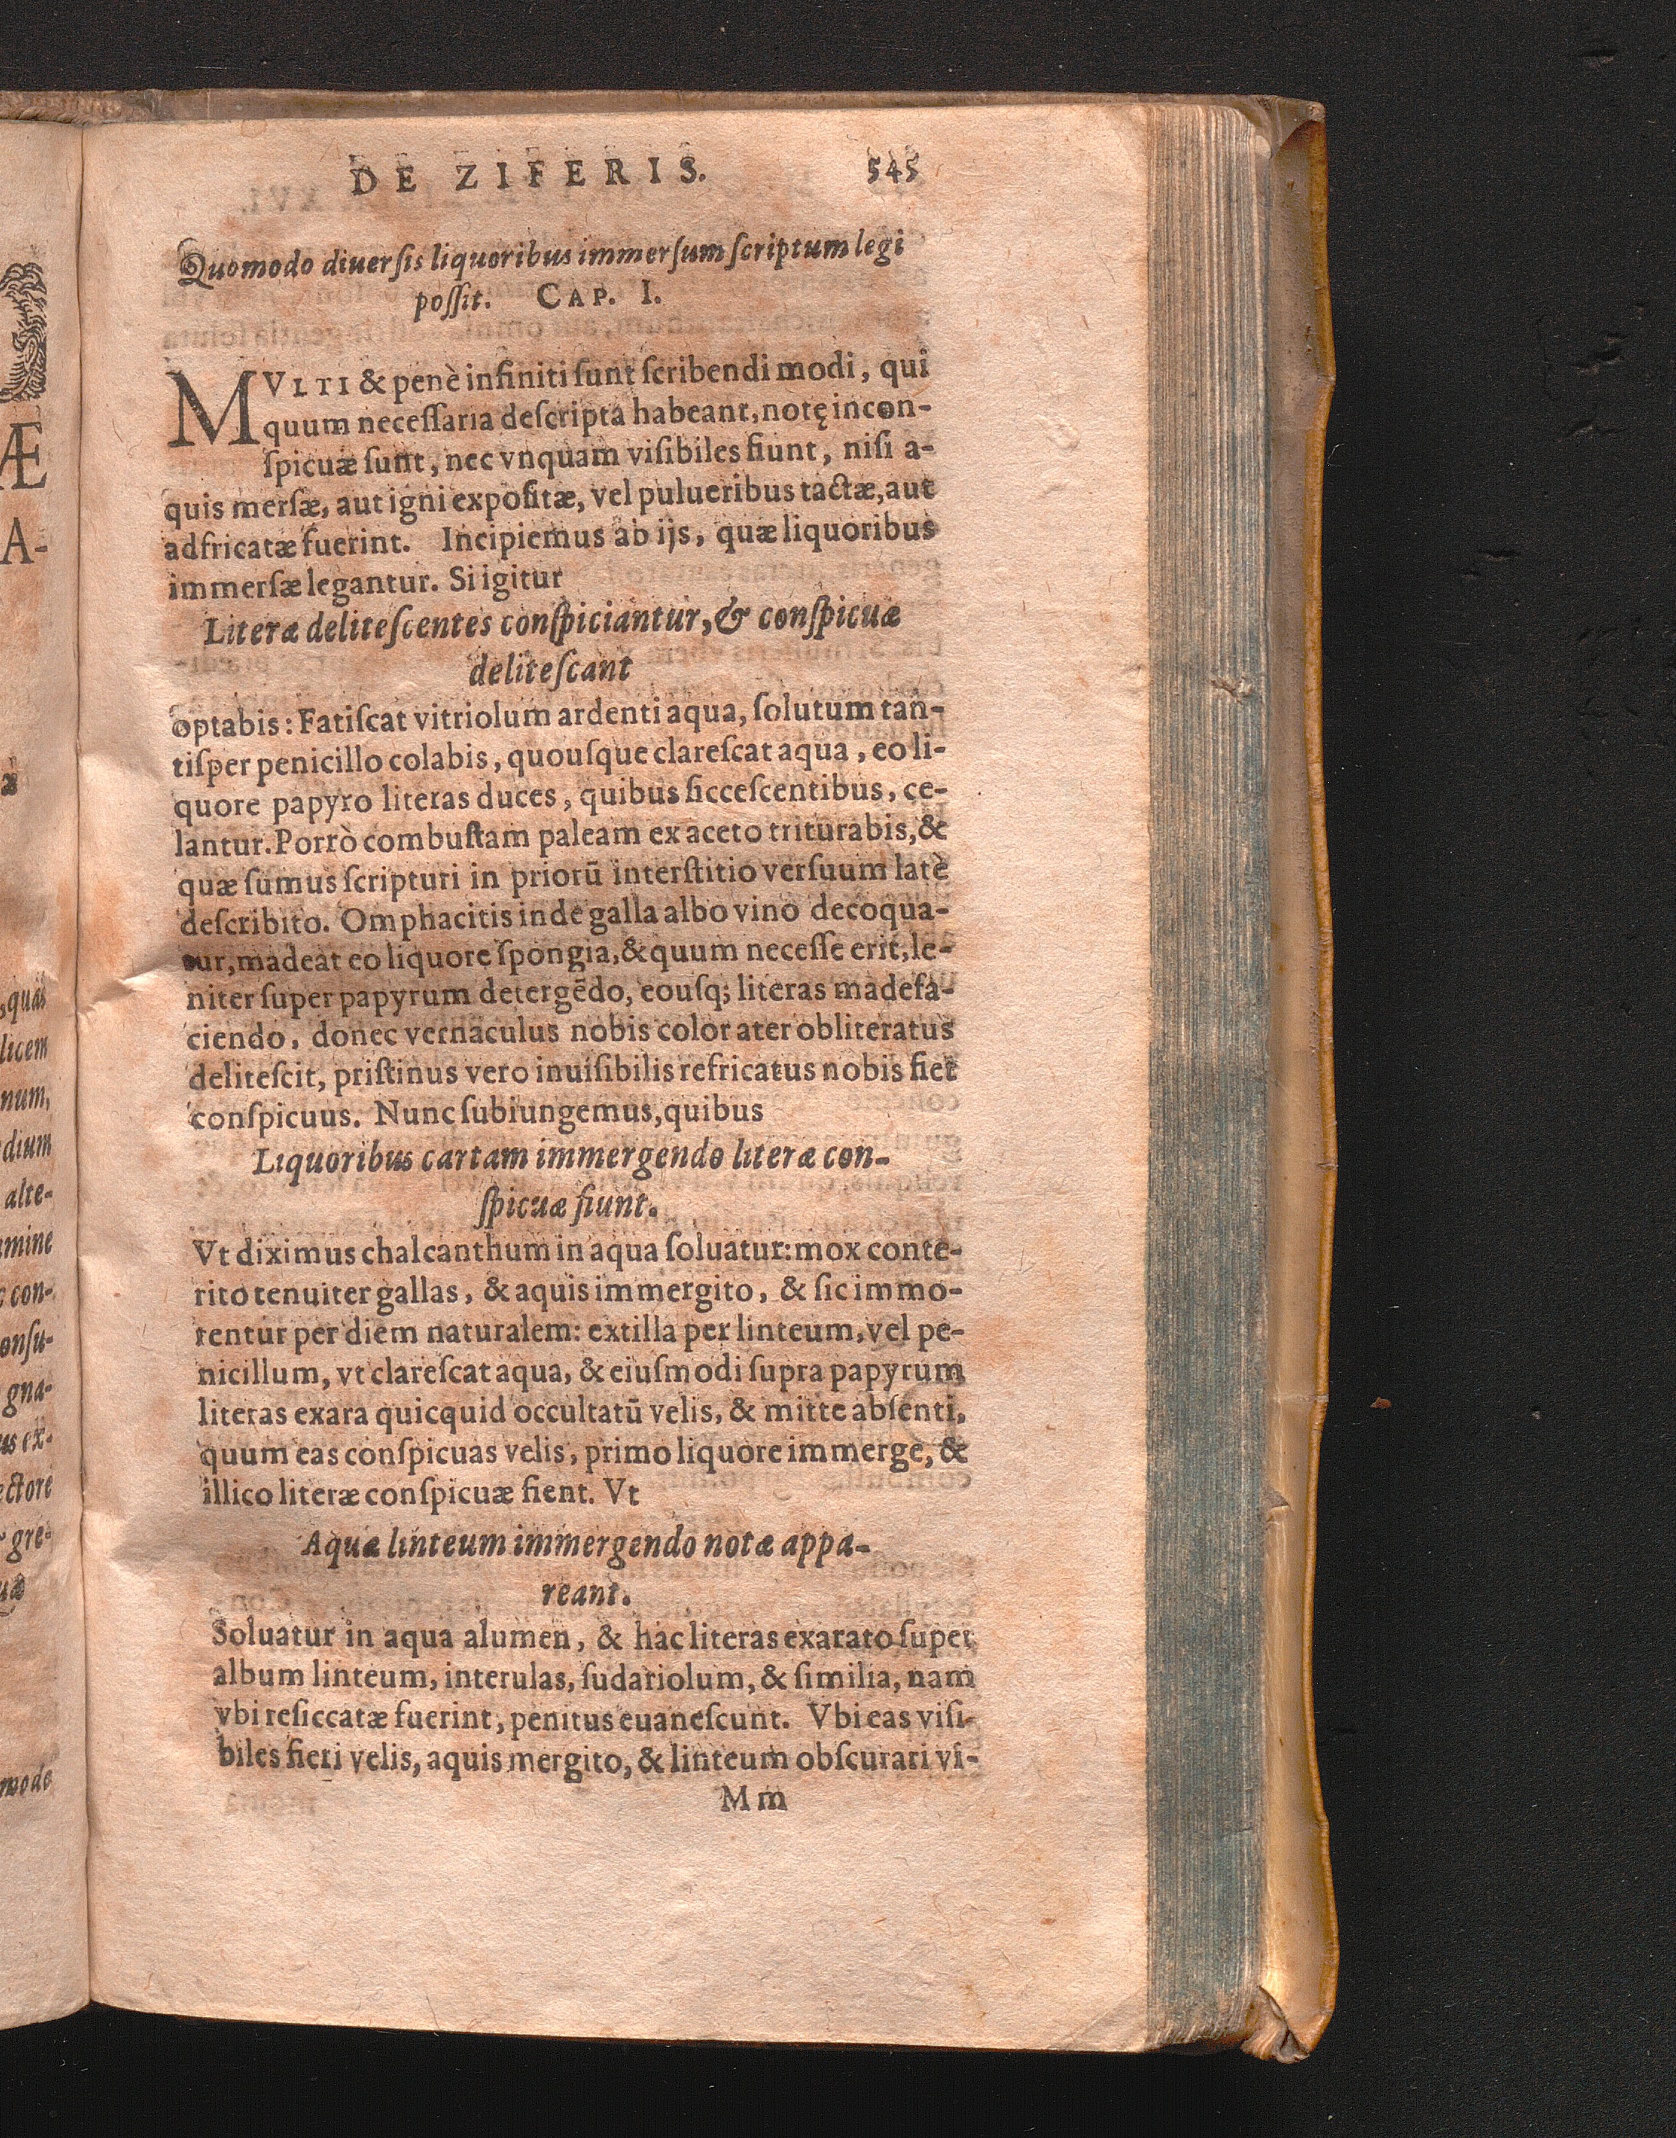 DE ZIFERIS. 545
Quomodo diuerſis liquoribus immerſum ſcriptum legi
poſſit. CAP. I.
MVLTI & penè infiniti ſunt ſcribendi modi, qui
quum neceſſaria deſcripta habeant, notę incon-
ſpicuæ ſunt, nec vnquam viſibiles fiunt, niſi a-
quis merſæ, aut igni expoſitæ, vel pulueribus tactæ, aut
adfricatæ fuerint. Incipiemus ab ijs, quæ liquoribus
immerſæ legantur. Si igitur
Literæ deliteſcentes conſpiciantur, & conſpicuæ
deliteſcant
optabis: Fatiſcat vitriolum ardenti aqua, ſolutum tan-
tiſper penicillo colabis, quouſque clareſcat aqua, eo li-
quore papyro literas duces, quibus ſicceſcentibus, ce-
lantur. Porrò combuſtam paleam ex aceto triturabis, &
quæ ſumus ſcripturi in priorū interſtitio verſuum latè
deſcribito. Omphacitis inde galla albo vino decoqua-
tur, madeat eo liquore ſpongia, & quum neceſſe erit, le-
niter ſuper papyrum detergēdo, eouſq; literas madefa-
ciendo, donec vernaculus nobis color ater obliteratus
deliteſcit, priſtinus vero inuiſibilis refricatus nobis fiet
conſpicuus. Nunc ſubiungemus, quibus
Liquoribus cartam immergendo literæ con-
ſpicuæ fiunt.
Vt diximus chalcanthum in aqua ſoluatur: mox conte-
rito tenuiter gallas, & aquis immergito, & ſic immo-
rentur per diem naturalem: extilla per linteum, vel pe-
nicillum, vt clareſcat aqua, & eiuſmodi ſupra papyrum
literas exara quicquid occultatū velis, & mitte abſenti,
quum eas conſpicuas velis, primo liquore immerge, &
illico literæ conſpicuæ fient. Vt
Aquæ linteum immergendo notæ appa-
reant.
Soluatur in aqua alumen, & hac literas exarato ſuper
album linteum, interulas, ſudariolum, & ſimilia, nam
vbi reſiccatæ fuerint, penitus euaneſcunt. Vbi eas viſi-
biles fieri velis, aquis mergito, & linteum obſcurari vi-
Mm
Æ
A-
quas
licem
num,
dium
alte-
mine
con-
onſu-
gna-
us ex-
ectore
gre-
uæ
mode